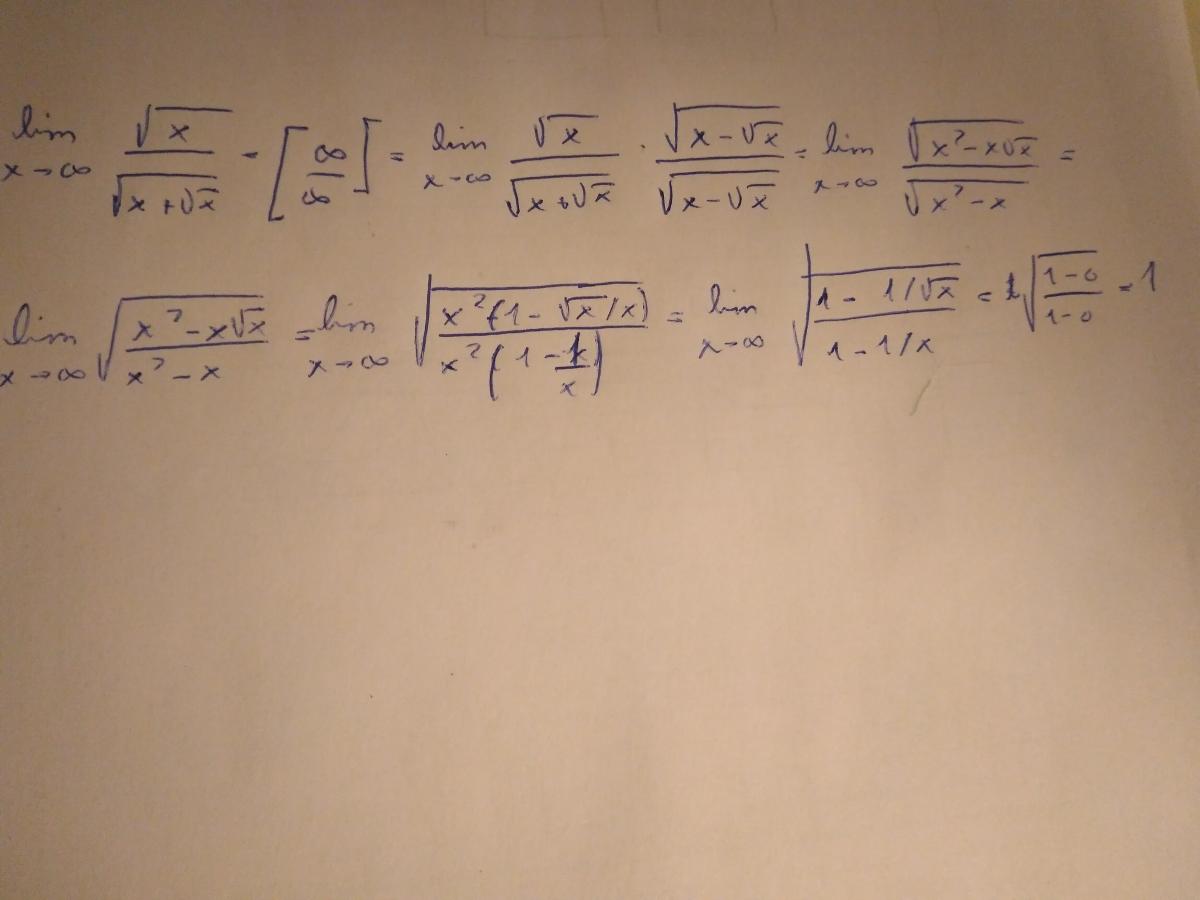 lim x→∞ √x / √(x+√x) = [∞/∞] = lim x→∞ √x / √(x+√x) · √(x-√x) / √(x-√x) = lim x→∞ √(x²-x√x) / √(x²-x) =
lim x→∞ √((x²-x√x) / (x²-x)) = lim x→∞ √(x²(1-√x/x) / x²(1-1/x)) = lim x→∞ √((1-1/√x) / (1-1/x)) = √((1-0) / (1-0)) = 1